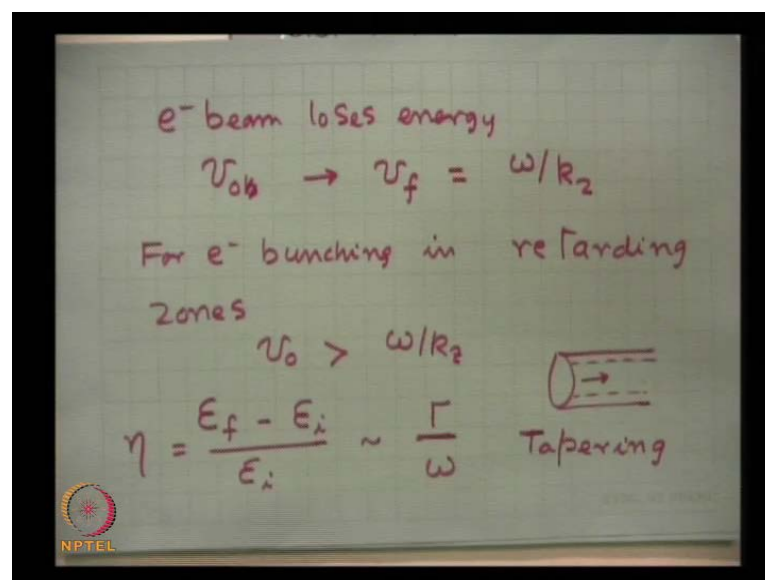 e⁻ beam loses energy
v₀b → v_f = ω/k_z
For e⁻ bunching in retarding
zones
v₀ > ω/k_z
η = (ε_f - ε_i)/ε_i ~ Γ/ω Tapering
NPTEL